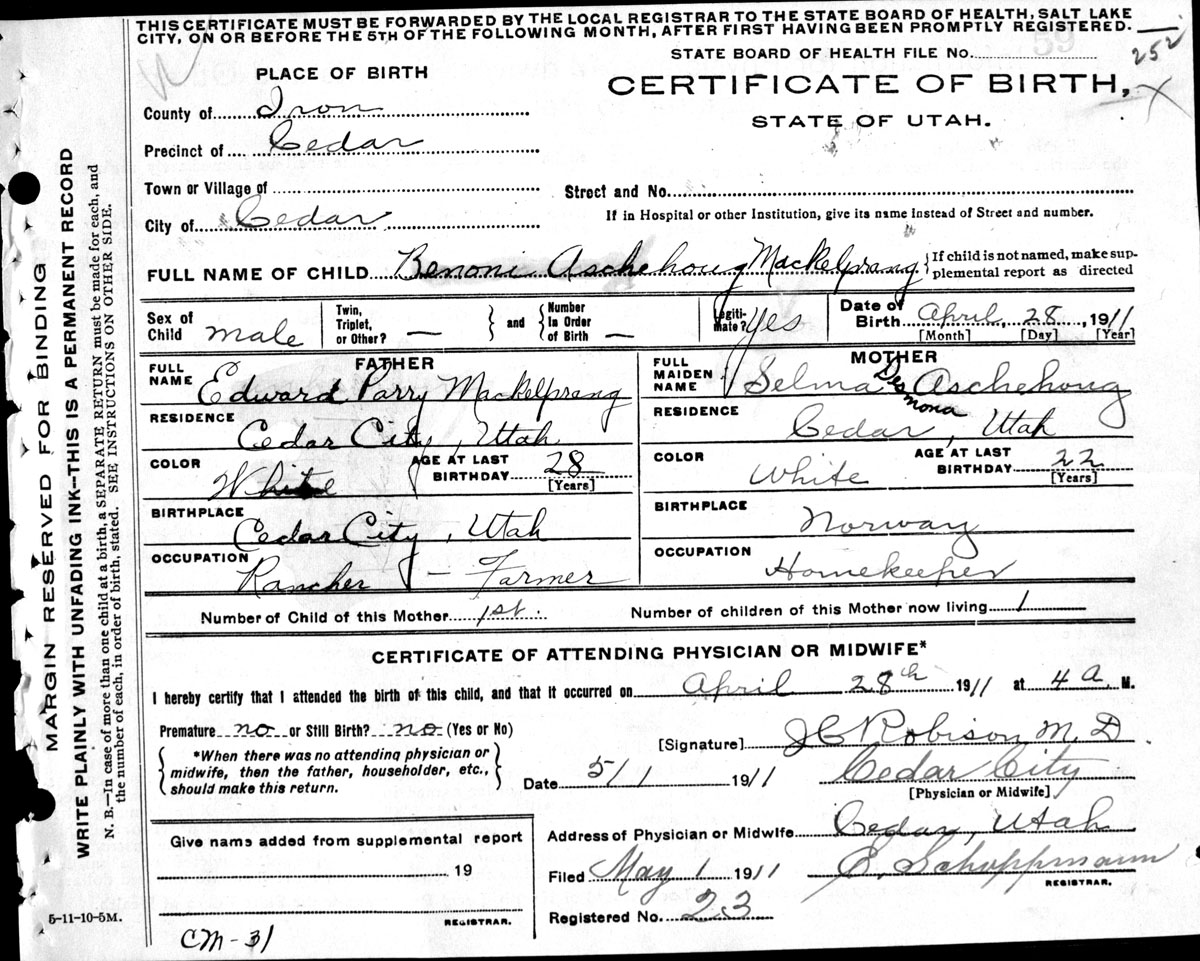 THIS CERTIFICATE MUST BE FORWARDED BY THE LOCAL REGISTRAR TO THE STATE BOARD OF HEALTH, SALT LAKE
CITY, ON OR BEFORE THE 5TH OF THE FOLLOWING MONTH, AFTER FIRST HAVING BEEN PROMPTLY REGISTERED.
59
252
STATE BOARD OF HEALTH FILE No.
PLACE OF BIRTH
CERTIFICATE OF BIRTH,
STATE OF UTAH.
County of Iron
Precinct of Cedar
Town or Village of
Street and No.
City of Cedar
If in Hospital or other Institution, give its name instead of Street and number.
FULL NAME OF CHILD Benoni Aschehoug Mackelprang {If child is not named, make sup-
plemental report as directed
Sex of Child male
Twin, Triplet, or Other? — } and { Number In Order of Birth —
Legiti-mate? Yes
Date of Birth April, 28, 1911
[Month] [Day] [Year]
FATHER
FULL NAME Edward Parry Mackelprang
RESIDENCE Cedar City, Utah
COLOR White AGE AT LAST BIRTHDAY 28
[Years]
BIRTHPLACE Cedar City, Utah
OCCUPATION Rancher - Farmer
MOTHER
FULL MAIDEN NAME Selma Desmona Aschehoug
RESIDENCE Cedar, Utah
COLOR White AGE AT LAST BIRTHDAY 22
[Years]
BIRTHPLACE Norway
OCCUPATION Homekeeper
Number of Child of this Mother 1st. Number of children of this Mother now living 1
CERTIFICATE OF ATTENDING PHYSICIAN OR MIDWIFE*
I hereby certify that I attended the birth of this child, and that it occurred on April 28th 1911 at 4 a. M.
Premature no or Still Birth? no (Yes or No)
*When there was no attending physician or
midwife, then the father, householder, etc.,
should make this return.
[Signature] J C Robison M. D
Date 5/1 1911 Cedar City
[Physician or Midwife]
Give name added from supplemental report
19
REGISTRAR.
CM-31
Address of Physician or Midwife Cedar, Utah
Filed May 1 1911 E. Schoppmann
REGISTRAR.
Registered No. 23
5-11-10-5M.
MARGIN RESERVED FOR BINDING
WRITE PLAINLY WITH UNFADING INK—THIS IS A PERMANENT RECORD
N. B.—In case of more than one child at a birth, a SEPARATE RETURN must be made for each, and
the number of each, in order of birth, stated. SEE INSTRUCTIONS ON OTHER SIDE.